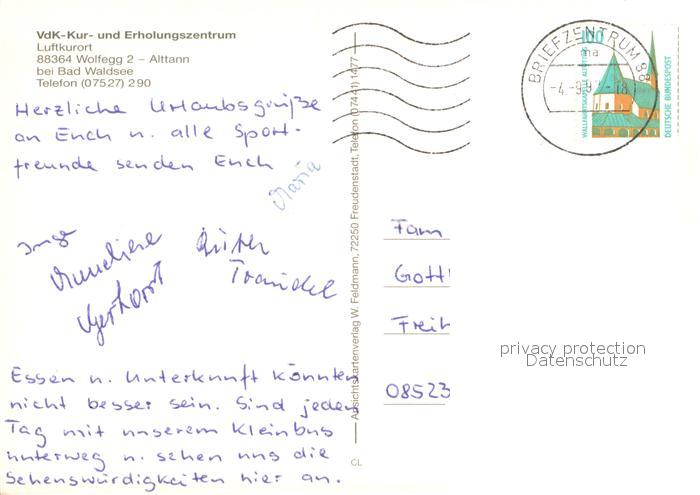 VdK-Kur- und Erholungszentrum
Luftkurort
88364 Wolfegg 2 – Alttann
bei Bad Waldsee
Telefon (07527) 2 90
Herzliche Urlaubsgrüße
an Euch u. alle Sport-
freunde senden Euch
Maria
Gerhard
Traudel
Essen u. Unterkunft könnten
nicht besser sein. Sind jeden
Tag mit unserem Kleinbus
unterweg u. sehen uns die
Sehenswürdigkeiten hier an.
Ansichtskartenverlag W. Feldmann, 72250 Freudenstadt, Telefon (07441) 1477
CL
BRIEFZENTRUM 88
100
WALLFAHRTSKAPELLE ALTÖTTING
DEUTSCHE BUNDESPOST
Fam
Gott
Freih
08523
privacy protection
Datenschutz